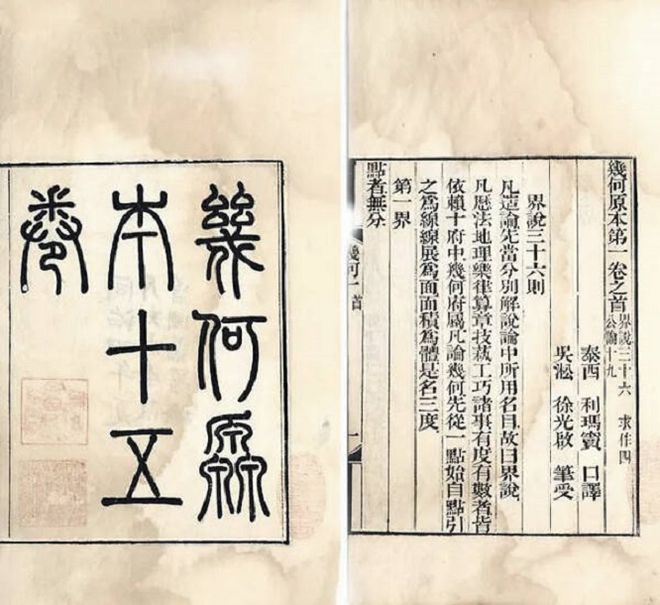 幾何原
本十五
卷
幾何原本第一卷之首 界說三十六 求作四
公論十九
泰西 利瑪竇 口譯
吳淞 徐光啟 筆受
界說三十六則
凡造論先當分別解說論中所用名目故曰界說
凡歷法地理樂律算章技藝工巧諸事有度有數者皆
依賴十府中幾何府屬凡論幾何先從一點始自點引
之爲線線展爲面面積爲體是名三度
第一界
點者無分
幾何一首
一